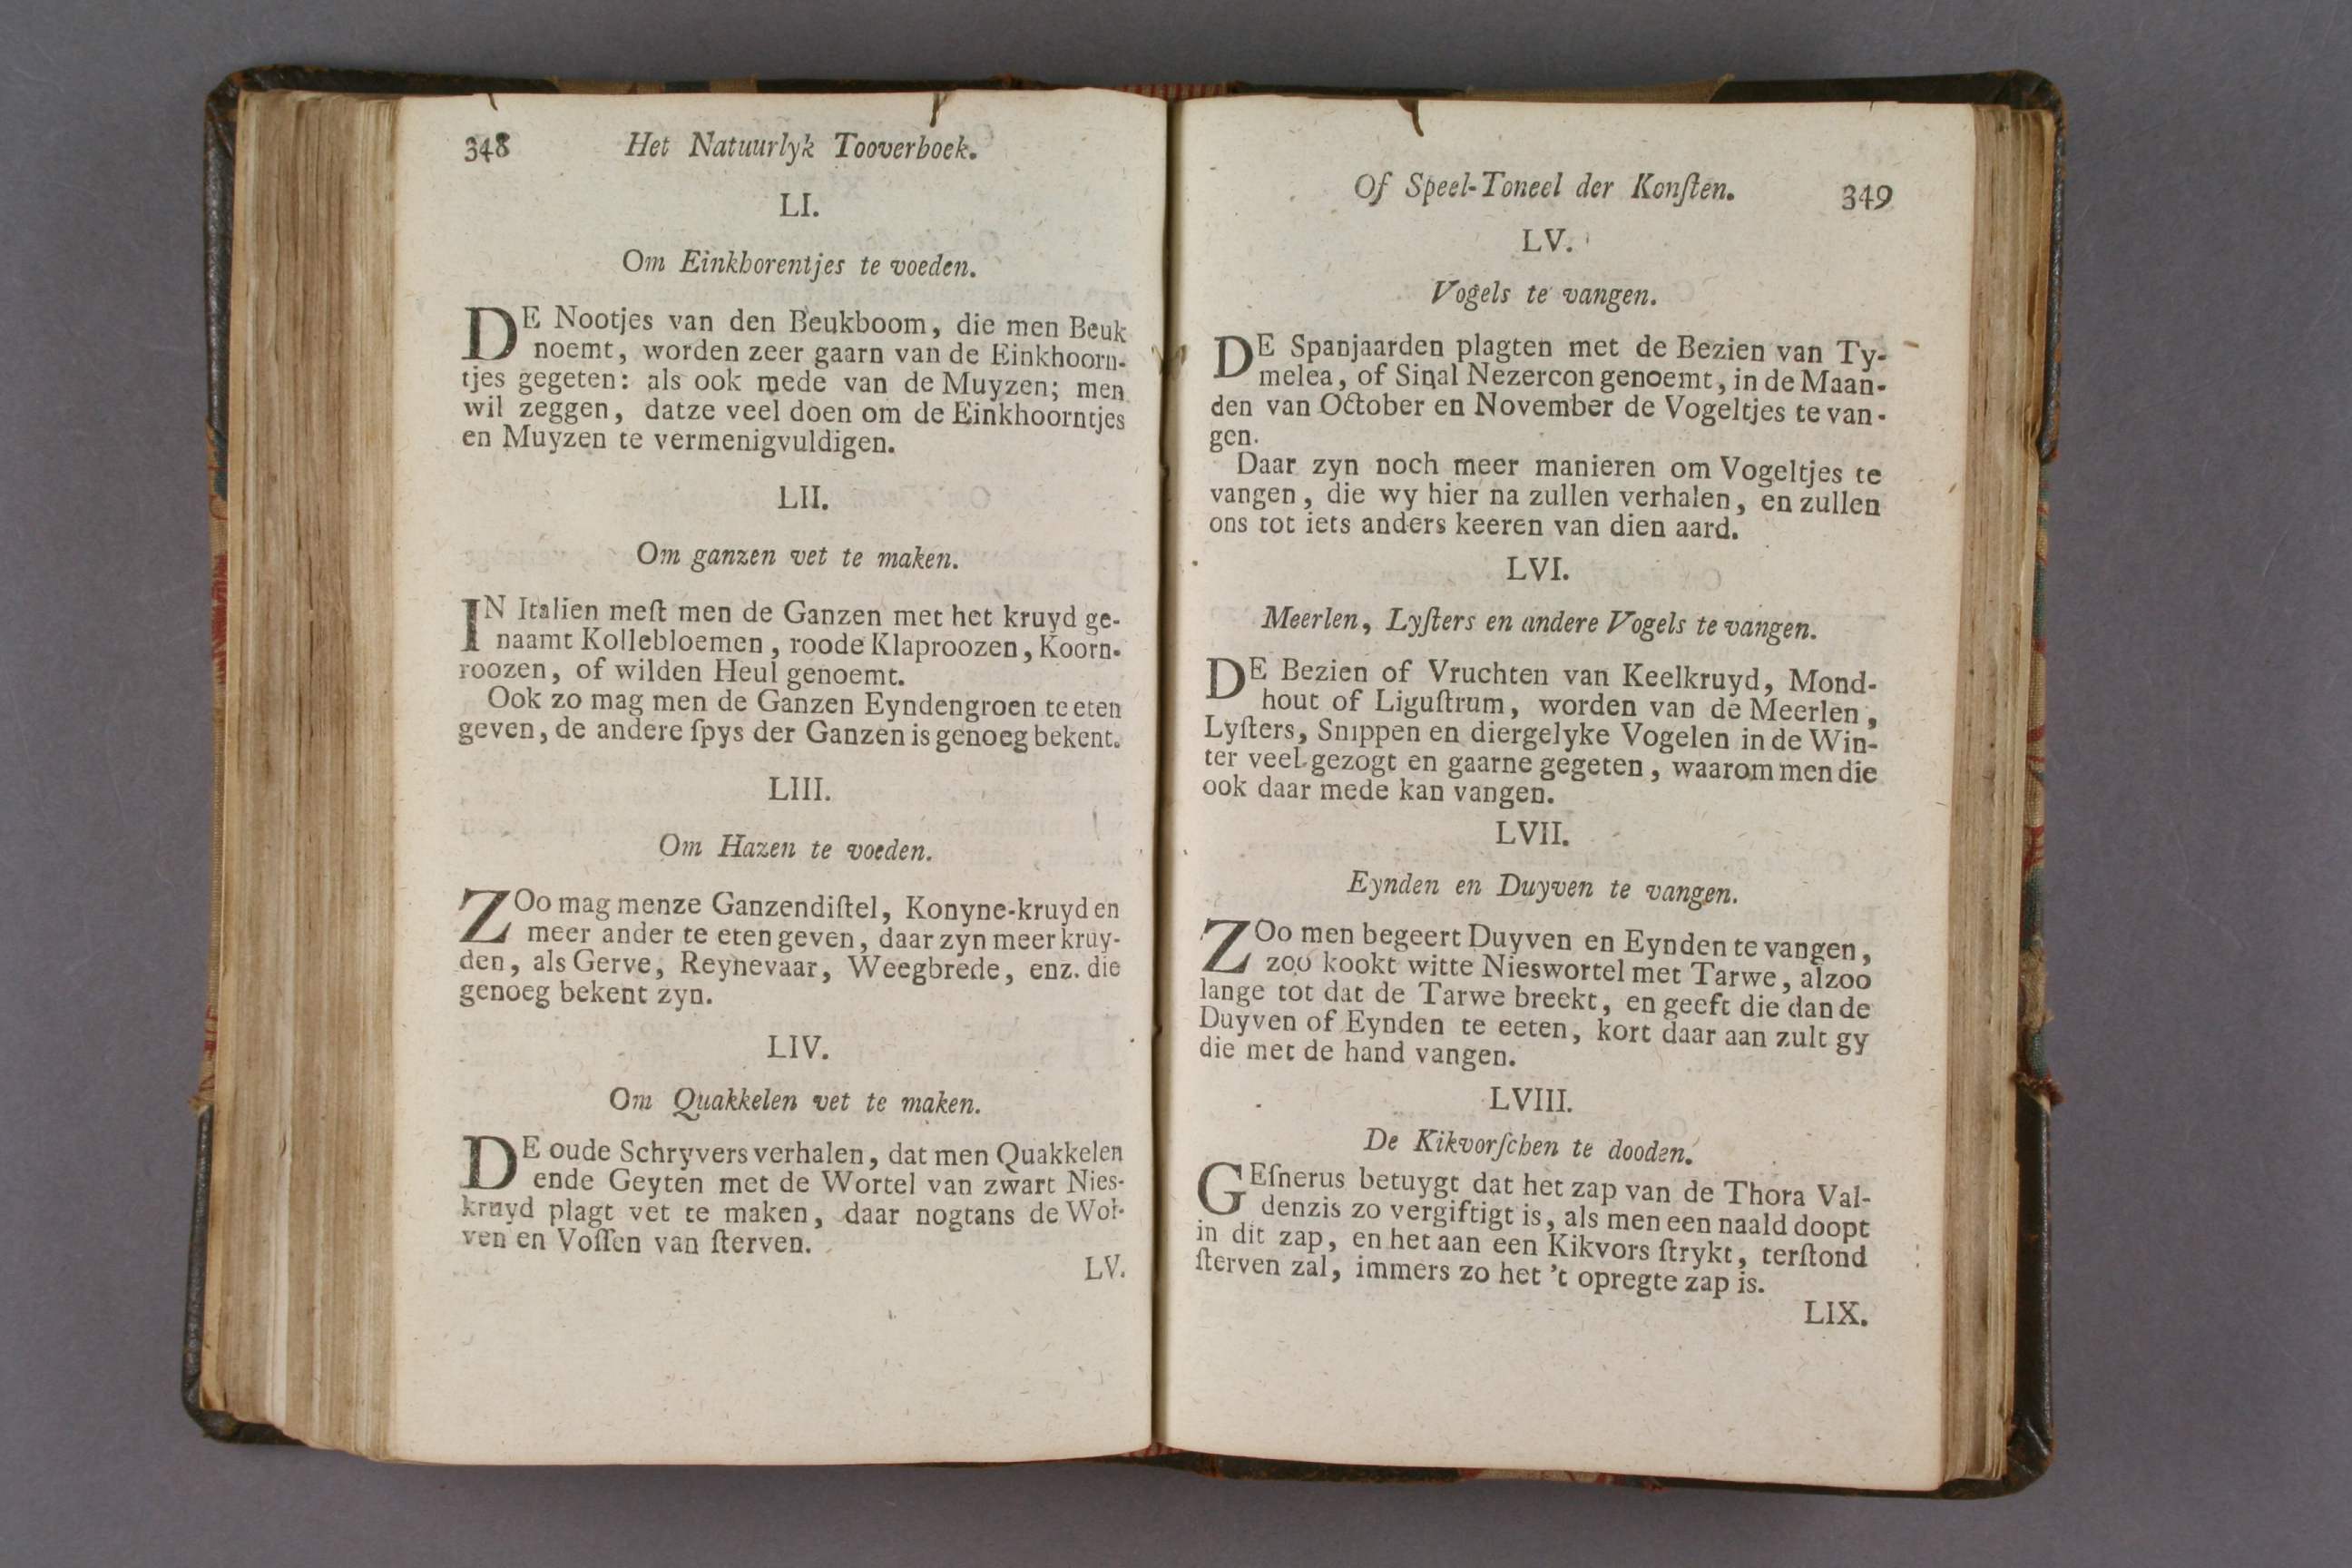 348 Het Natuurlyk Tooverboek.
LI.
Om Einkhorentjes te voeden.
DE Nootjes van den Beukboom, die men Beuk
noemt, worden zeer gaarn van de Einkhoorn-
tjes gegeten: als ook mede van de Muyzen; men
wil zeggen, datze veel doen om de Einkhoorntjes
en Muyzen te vermenigvuldigen.
LII.
Om ganzen vet te maken.
IN Italien meſt men de Ganzen met het kruyd ge-
naamt Kollebloemen, roode Klaproozen, Koorn-
roozen, of wilden Heul genoemt.
Ook zo mag men de Ganzen Eyndengroen te eten
geven, de andere ſpys der Ganzen is genoeg bekent.
LIII.
Om Hazen te voeden.
ZOo mag menze Ganzendiſtel, Konyne-kruyd en
meer ander te eten geven, daar zyn meer kruy-
den, als Gerve, Reynevaar, Weegbrede, enz. die
genoeg bekent zyn.
LIV.
Om Quakkelen vet te maken.
DE oude Schryvers verhalen, dat men Quakkelen
ende Geyten met de Wortel van zwart Nies-
kruyd plagt vet te maken, daar nogtans de Wol-
ven en Voſſen van ſterven.
LV.
Of Speel-Toneel der Konſten. 349
LV.
Vogels te vangen.
DE Spanjaarden plagten met de Bezien van Ty-
melea, of Sinal Nezercon genoemt, in de Maan-
den van October en November de Vogeltjes te van-
gen.
Daar zyn noch meer manieren om Vogeltjes te
vangen, die wy hier na zullen verhalen, en zullen
ons tot iets anders keeren van dien aard.
LVI.
Meerlen, Lyſters en andere Vogels te vangen.
DE Bezien of Vruchten van Keelkruyd, Mond-
hout of Liguſtrum, worden van de Meerlen,
Lyſters, Snippen en diergelyke Vogelen in de Win-
ter veel gezogt en gaarne gegeten, waarom men die
ook daar mede kan vangen.
LVII.
Eynden en Duyven te vangen.
ZOo men begeert Duyven en Eynden te vangen,
zoo kookt witte Nieswortel met Tarwe, alzoo
lange tot dat de Tarwe breekt, en geeft die dan de
Duyven of Eynden te eeten, kort daar aan zult gy
die met de hand vangen.
LVIII.
De Kikvorſchen te dooden.
GEſnerus betuygt dat het zap van de Thora Val-
denzis zo vergiftigt is, als men een naald doopt
in dit zap, en het aan een Kikvors ſtrykt, terſtond
ſterven zal, immers zo het 't opregte zap is.
LIX.